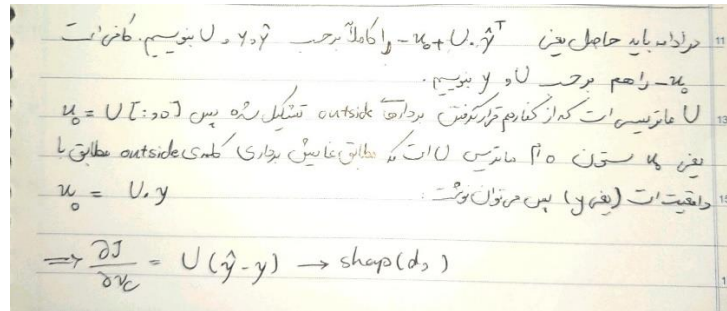 در ادامه باید حاصل یعنی -u₀ + U.ŷᵀ را کاملاً برحسب ŷ و y و U بنویسیم. کافی است
-u₀ را هم برحسب U و y بنویسیم.
U ماتریسی است که از کنار هم قرار گرفتن بردارهای outside تشکیل شده پس u₀ = U[:,o]
یعنی u₀ ستون o ام ماتریس U است که مطابق نمایش برداری کلمه‌ی outside مطابق با
واقعیت است (یعنی y) پس می‌توان نوشت: u₀ = U.y
⇒ ∂J/∂v_c = U(ŷ-y) → shap(d,)
11
13
15
1